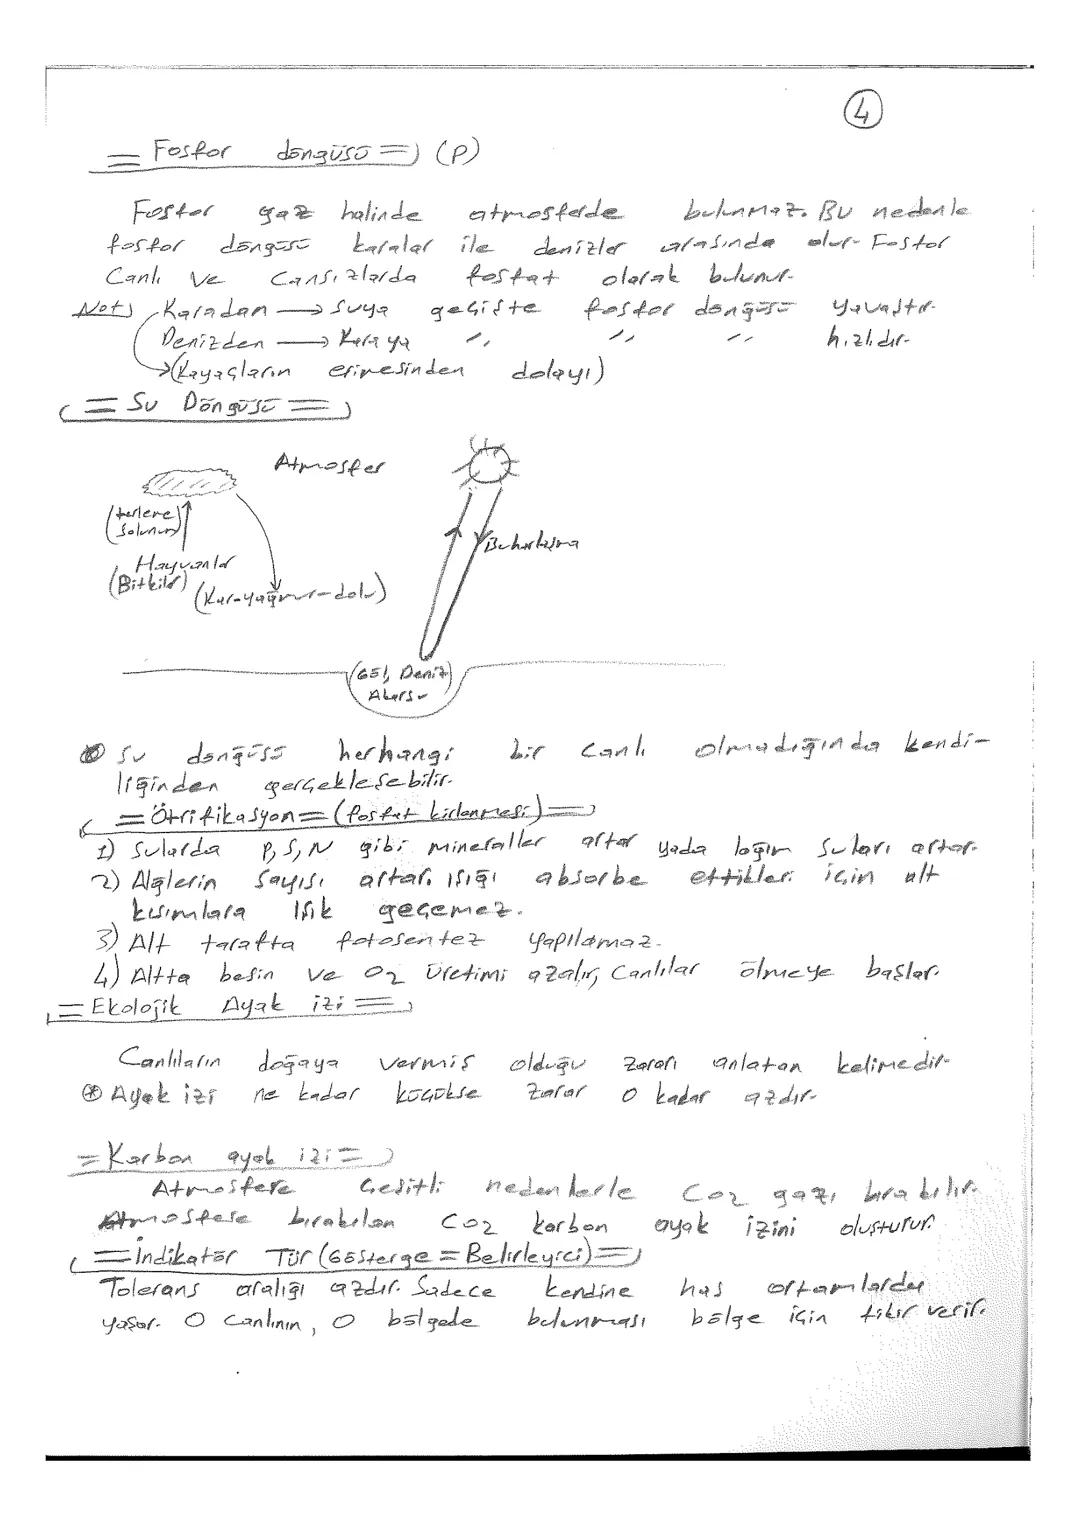 4
= Fosfor döngüsü =) (P)
Fosfor gaz halinde atmosferde bulunmaz. Bu nedenle
fosfor döngüsü karalar ile denizler arasında olur. Fosfor
Canlı ve Cansızlarda fosfat olarak bulunur.
Not) Karadan → Suya geçişte fosfor döngüsü yavaştır.
Denizden → Karaya " " " hızlıdır.
→ (Kayaçların erimesinden dolayı)
(= Su Döngüsü =)
Atmosfer
(terleme)
Solunum
Buharlaşma
Hayvanlar
(Bitkiler)
(Kar-yağmur-dolu)
(Göl, Deniz)
Akarsu
* Su döngüsü herhangi bir canlı olmadığında kendi-
liğinden gerçekleşebilir.
= Ötrifikasyon = (fosfat kirlenmesi) =
1) Sularda P, S, N gibi mineraller artar yada lağım suları artar.
2) Alglerin sayısı artar. Işığı absorbe ettikleri için alt
kısımlara ışık geçemez.
3) Alt tarafta fotosentez yapılamaz.
4) Altta besin ve O2 üretimi azalır, Canlılar ölmeye başlar.
= Ekolojik Ayak izi =
Canlıların doğaya vermiş olduğu zararı anlatan kelimedir.
* Ayak izi ne kadar küçükse zarar o kadar azdır.
= Karbon ayak izi =)
Atmosfere Çeşitli nedenlerle CO2 gazı bırakılır.
Atmosfere bırakılan CO2 karbon ayak izini oluşturur.
(= İndikatör Tür (Gösterge = Belirleyici) =)
Tolerans aralığı azdır. Sadece kendine has ortamlarda
yaşar. O canlının, O bölgede bulunması bölge için fikir verir.